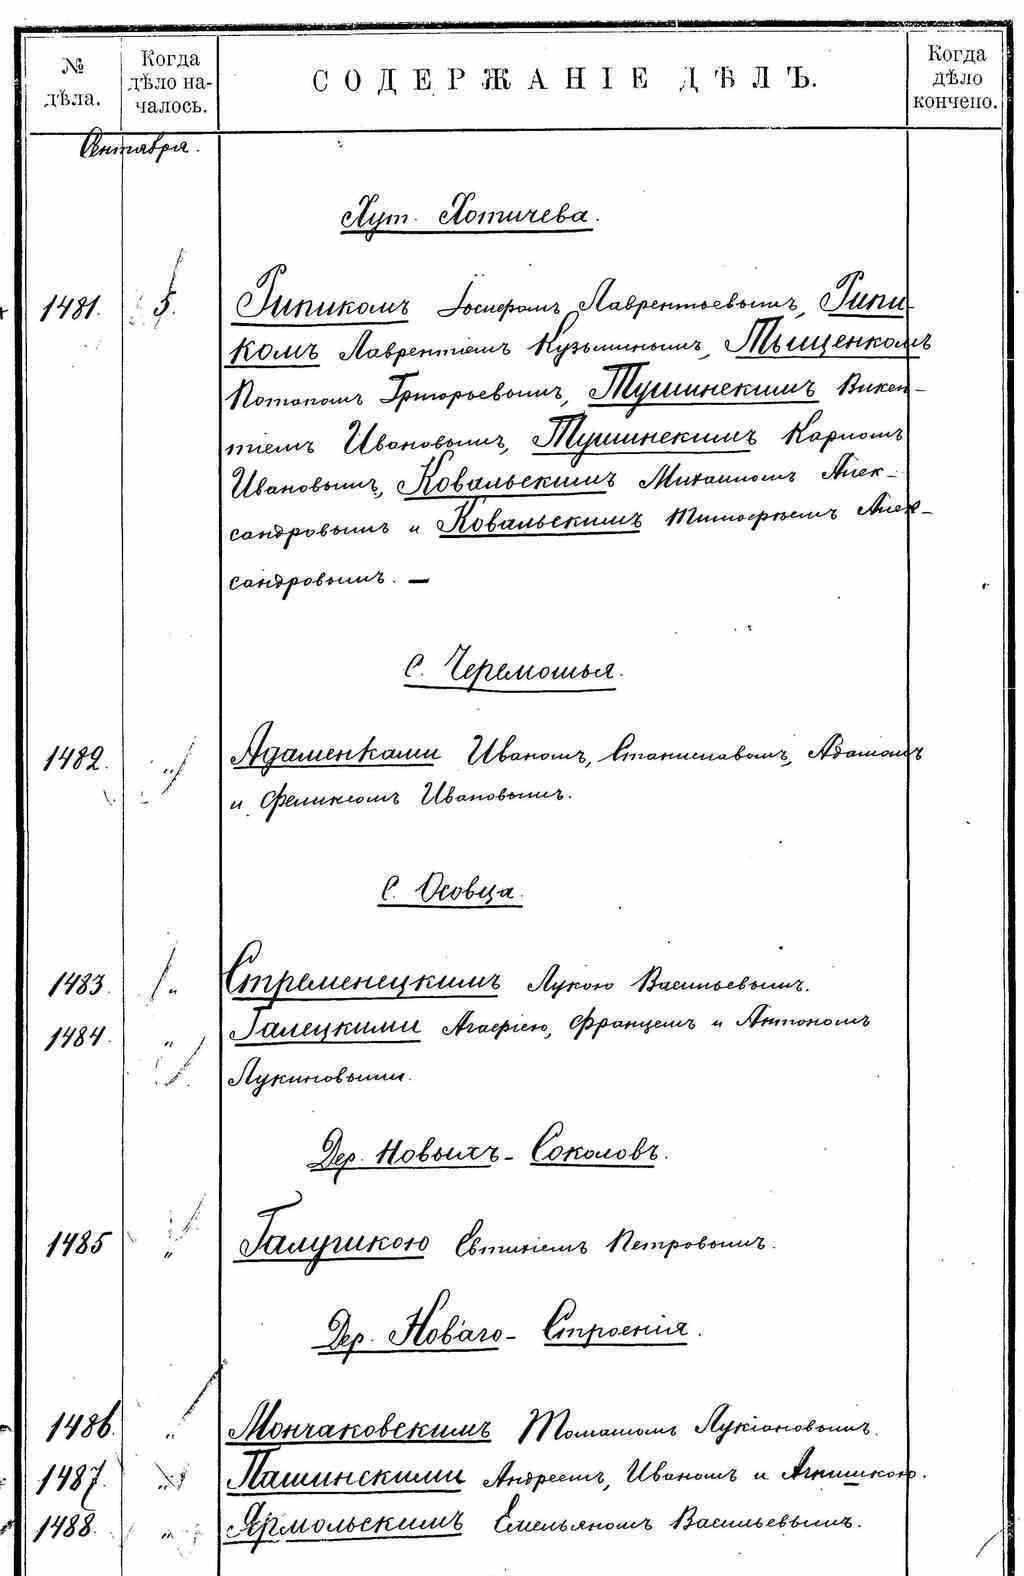 № дѣла.
Когда дѣло началось.
СОДЕРЖАНІЕ ДѢЛЪ.
Когда дѣло кончено.
Сентября.
Хут. Хотичева.
1481. 5. Рипикомъ Іосифомъ Лаврентьевымъ, Рипи-
комъ Лаврентіемъ Кузьминымъ, Тыщенкомъ
Потапомъ Григорьевымъ, Тушинскимъ Викен-
тіемъ Ивановымъ, Тушинскимъ Карпомъ
Ивановымъ, Ковальскимъ Михаиломъ Алек-
сандровымъ и Ковальскимъ Тимофѣемъ Алек-
сандровымъ. —
С. Черемошья.
1482. „ Адаменками Иваномъ, Станиславомъ, Адамомъ
и Феликсомъ Ивановымъ.
С. Осовца.
1483. „ Стременецкимъ Лукою Васильевымъ.
1484. „ Галецкими Агафіею, Францемъ и Антономъ
Лукиновыми.
Дер. Новыхъ-Соколовъ.
1485 „ Галушкою Евтихіемъ Петровымъ.
Дер. Новаго-Строенія.
1486. „ Мончаковскимъ Томашомъ Лукіановымъ.
1487. „ Пашинскими Андреемъ, Иваномъ и Агнишкою.
1488. „ Ярмольскимъ Емельяномъ Васильевымъ.